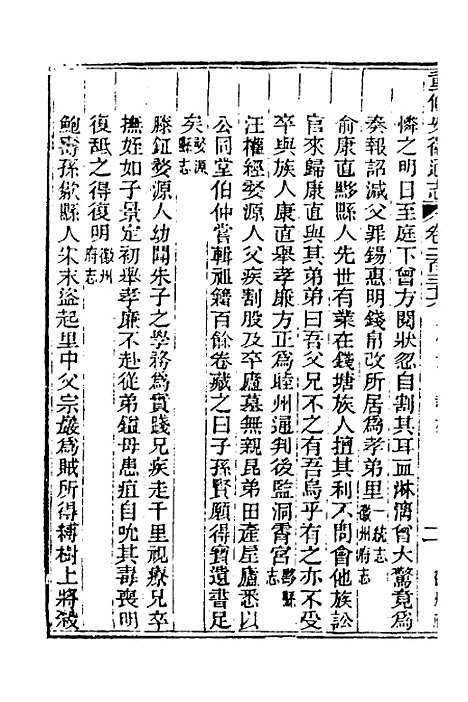 重修安徽通志 卷二百
憐之明日至庭下曾方閱狀忽自割其耳血淋漓曾大驚竟爲
奏報詔減父罪錫惠明錢帛改所居爲孝弟里一統志徽州府志
俞康直黟縣人先世有業在錢塘族人擅其利不問會他族訟
官來歸康直與其弟弟曰吾父兄不之有吾烏乎有之亦不受
卒與族人康直舉孝廉方正爲睦州通判後監洞霄宮黟縣志
汪權經婺源人父疾割股及卒廬墓無親昆弟田產屋廬悉以
公同堂伯仲嘗輯祖籍百餘卷藏之曰子孫賢願得寶遺書足
矣婺源縣志
滕鉦婺源人幼聞朱子之學務爲實踐兄疾走千里視療兄卒
撫姪如子景定初舉孝廉不赴從弟鎰母患疽自吮其毒喪明
復舐之得復明徽州府志
鮑壽孫歙縣人宋末盜起里中父宗巖爲賊所得縛樹上將殺